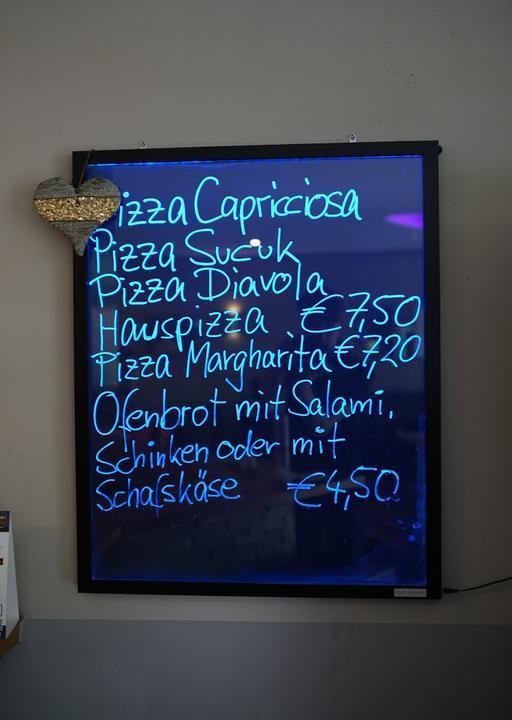 Pizza Capricciosa
Pizza Sucuk
Pizza Diavola
Hauspizza €7,50
Pizza Margharita €7,20
Ofenbrot mit Salami,
Schinken oder mit
Schafskäse €4,50